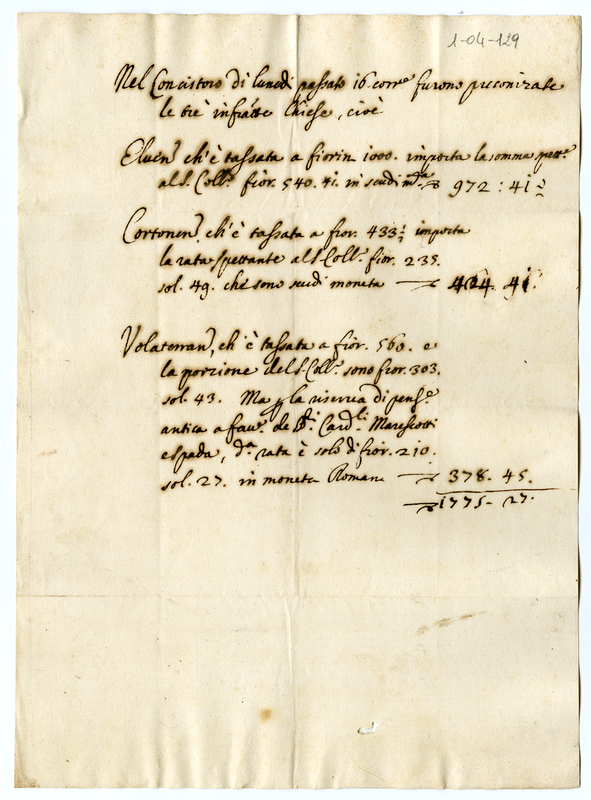 1-04-129
Nel Concistoro di lunedi passato 16 corr.e furono preconizate
le trè infratte Chiese, cioè
Eluen. ch'è tassata a fiorin 1000. importa la somma spett.e
al S. Coll.o fior. 540. 41. in scudi m.ta 972 : 41 ½
Cortonen. ch'è tassata a fior. 433 ⅓ importa
la rata spettante al S. Coll.o fior. 235.
sol. 49. che sono scudi moneta 424 41.
Volaterran, ch'è tassata a fior. 560. e
la porzione del S. Coll.o sono fior. 303.
sol. 43. Ma p la riserva di pens.e
antica a fav.e de SS.ri Card.li Marescotti
e Spada, d.a rata è solo di fior. 210.
sol. 27. in moneta Romana 378. 45.
1775 - 27.